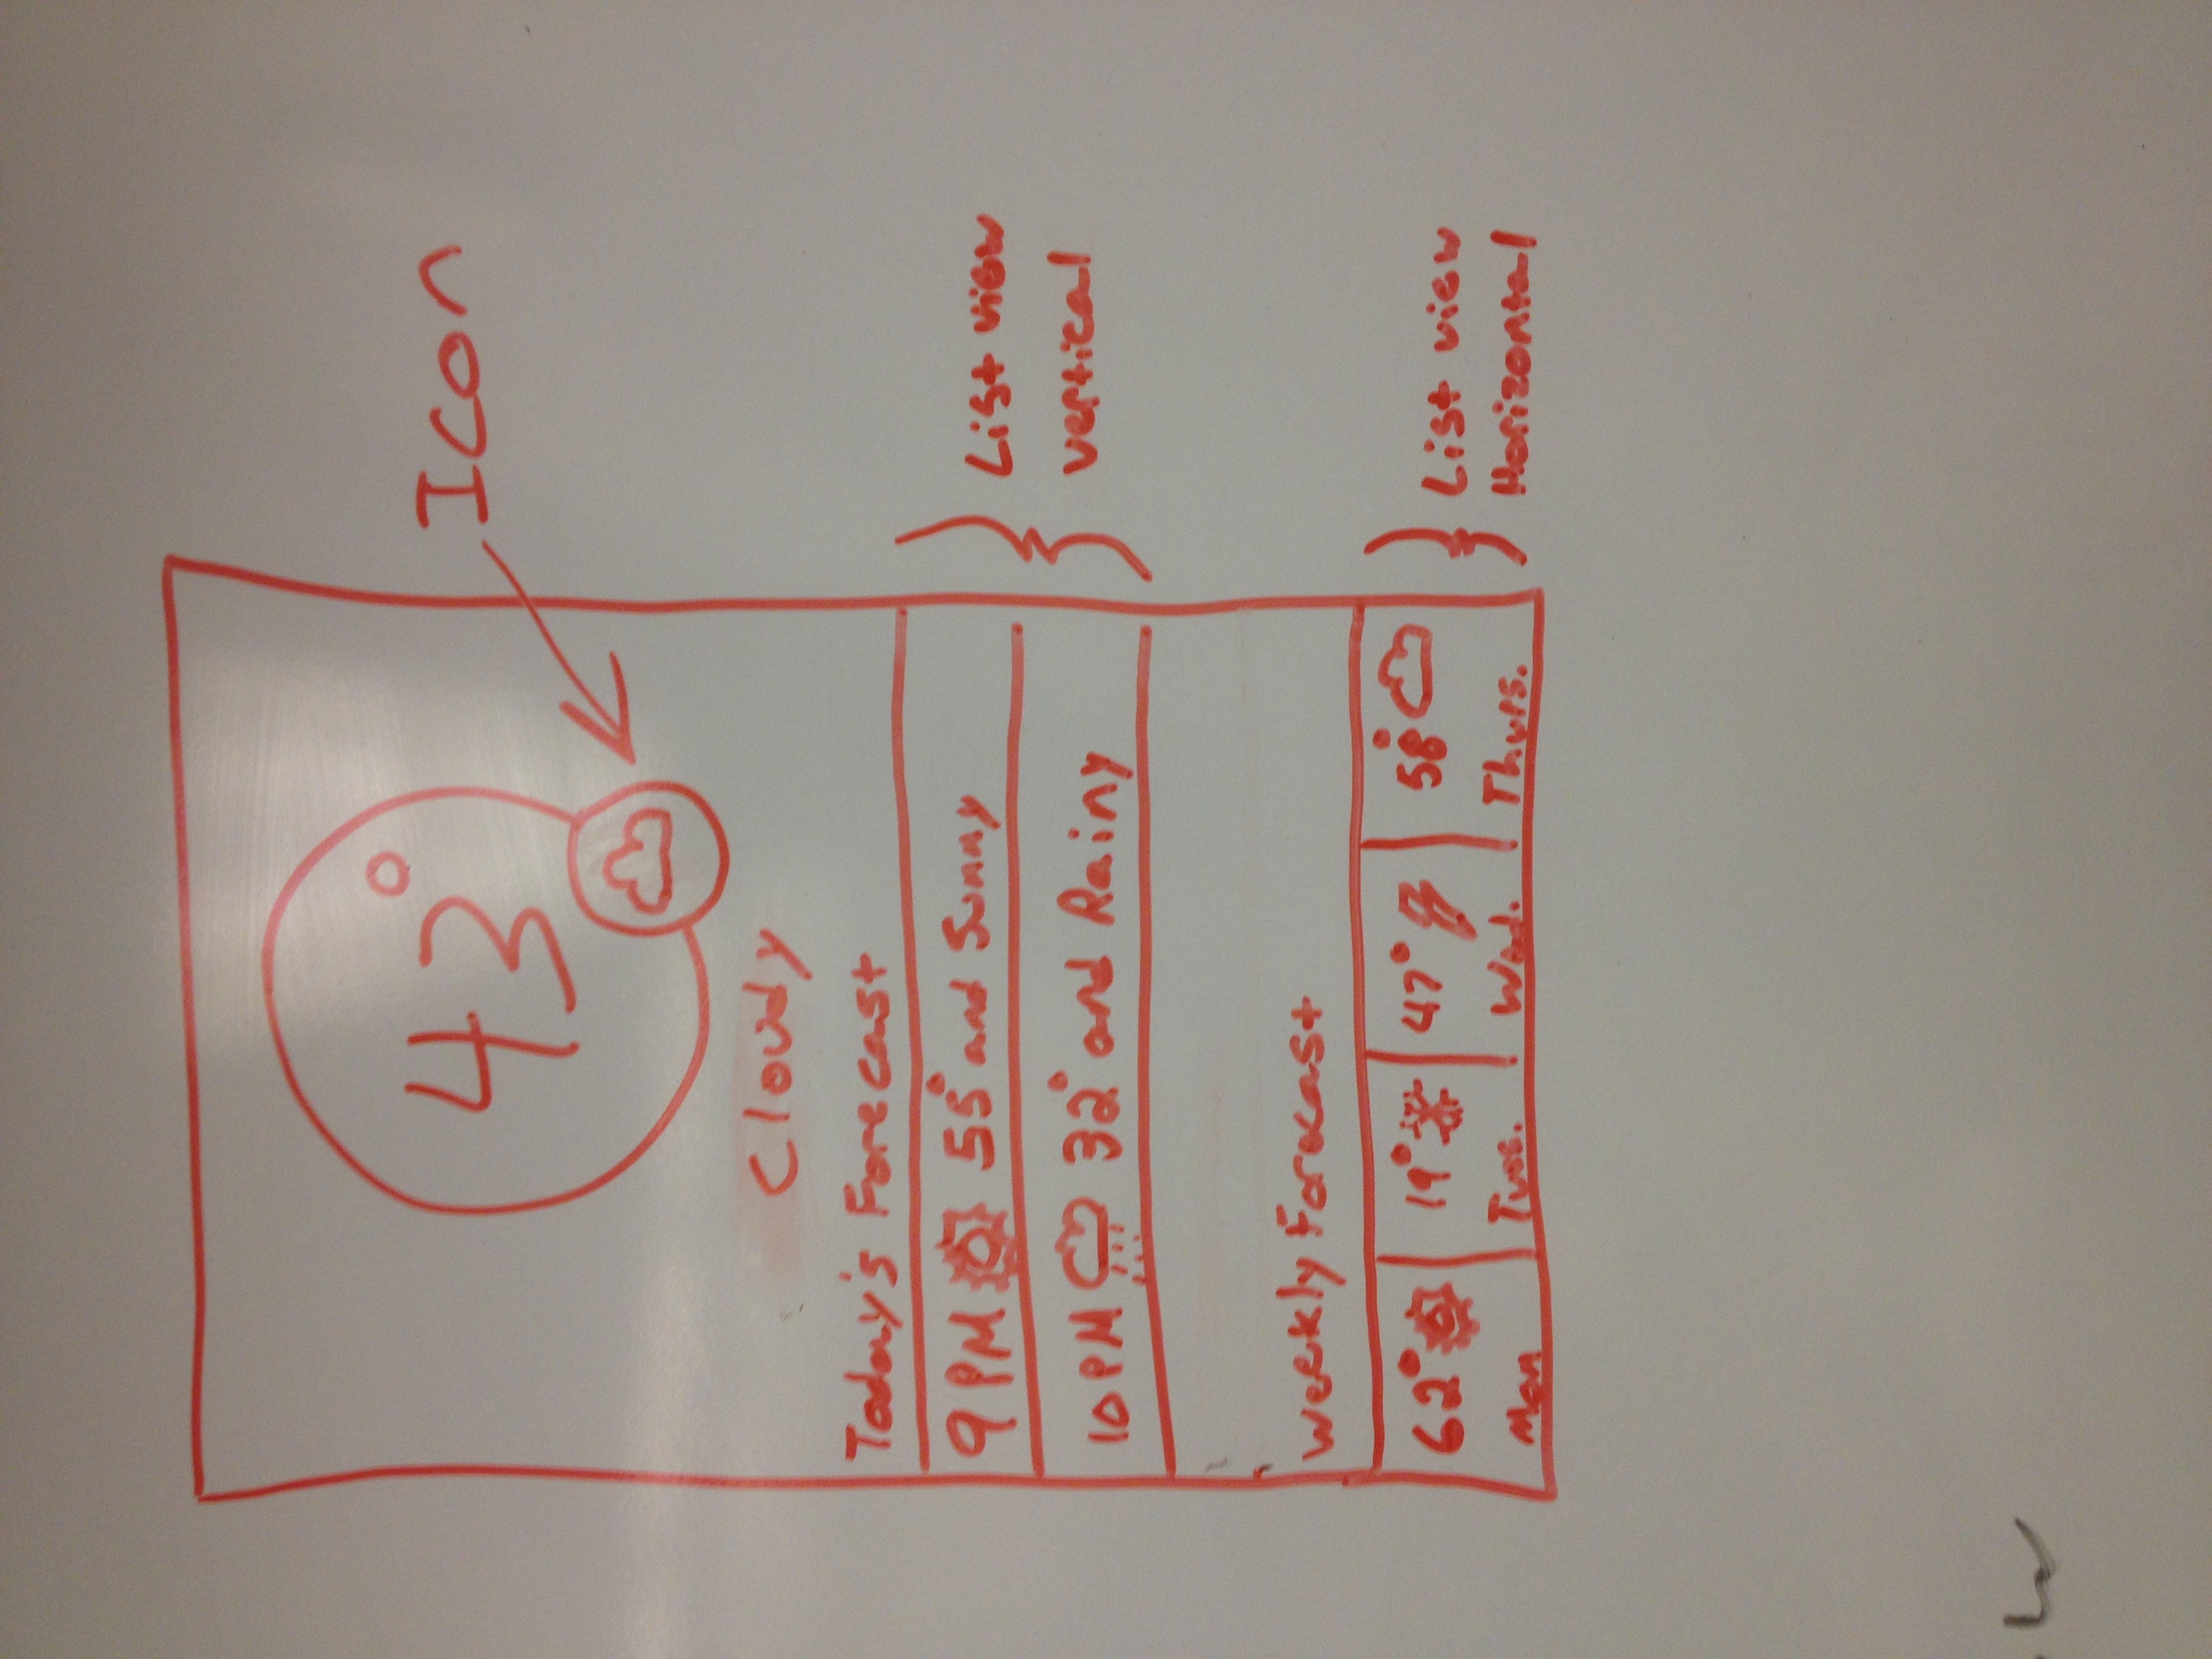 43°
Icon
Cloudy
Today's Forecast
9 PM 55° and Sunny
10 PM 32° and Rainy
List view
vertical
Weekly Forecast
62° 19° 47° 58°
Mon Tues. Wed. Thurs.
List view
Horizontal